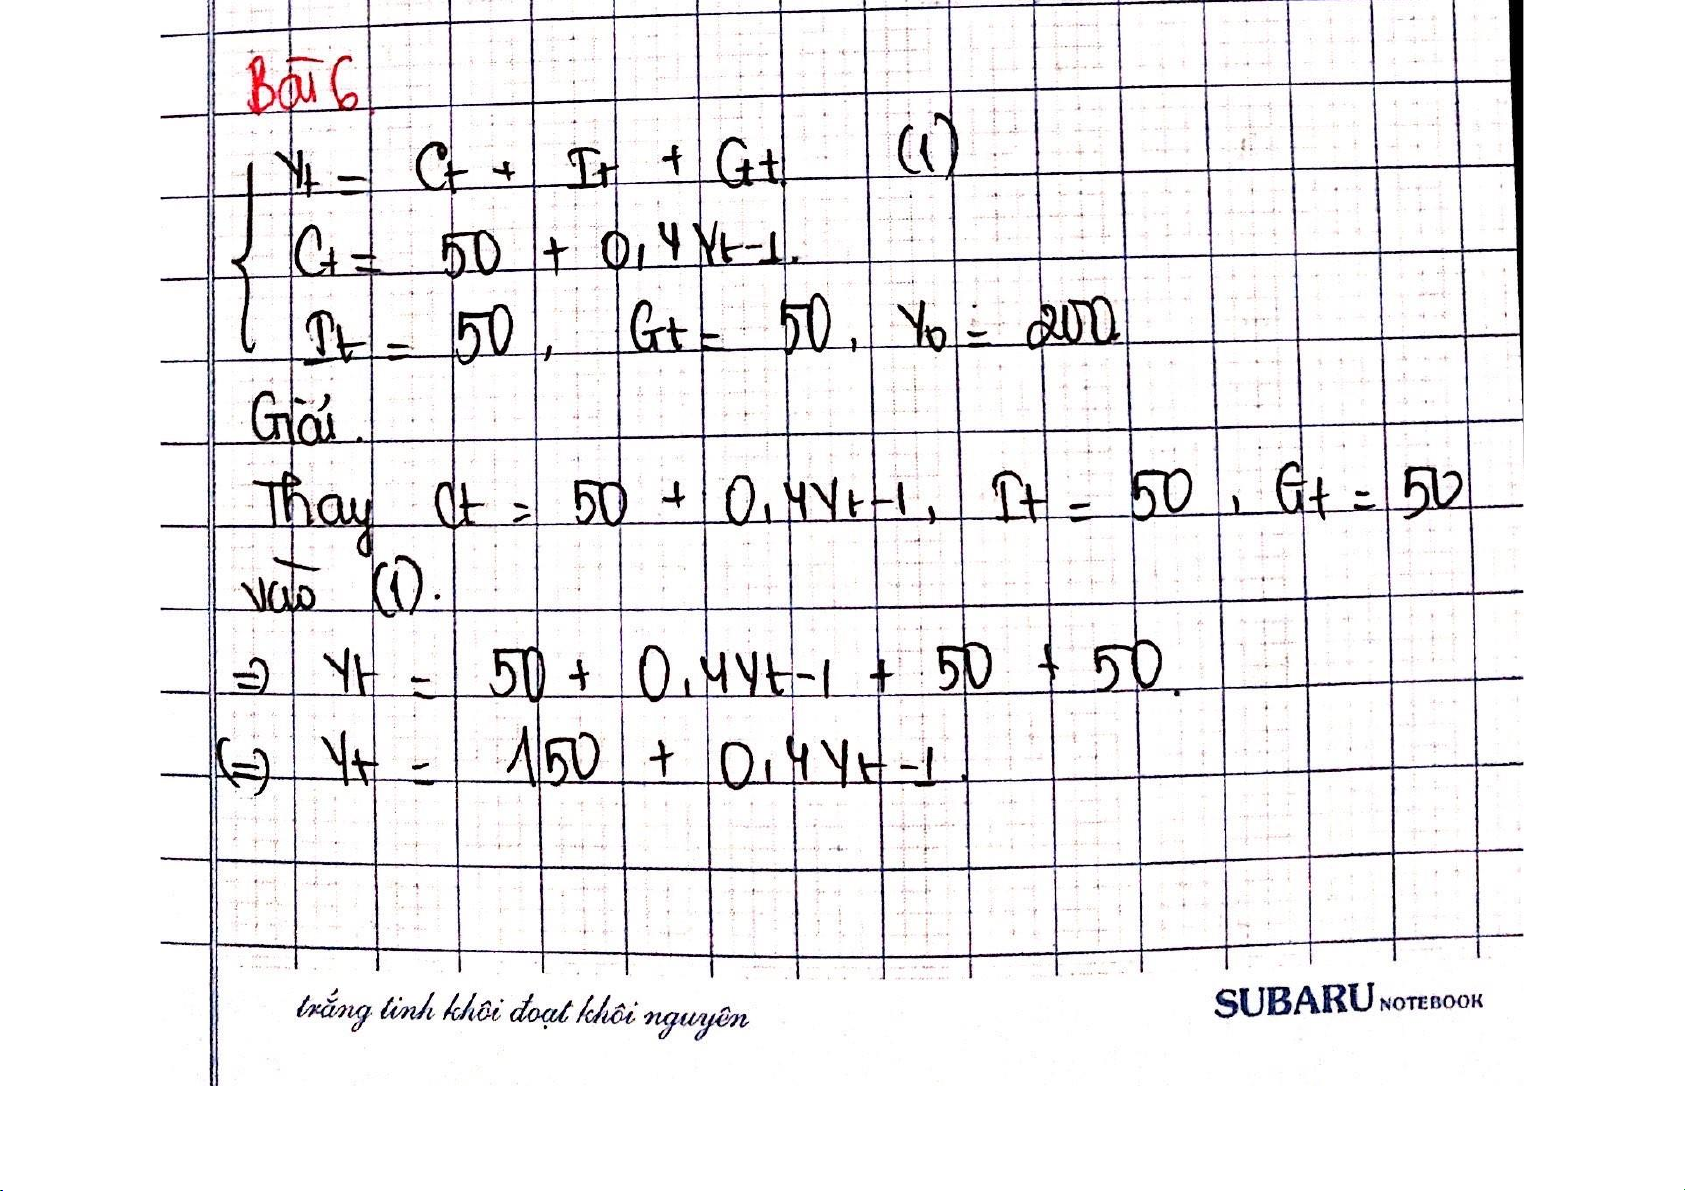 Bài 6
Yt = Ct + It + Gt (1)
Ct = 50 + 0,4Yt-1.
It = 50, Gt = 50, Y0 = 200
Giải.
Thay Ct = 50 + 0,4Yt-1, It = 50, Gt = 50
vào (1).
=> Yt = 50 + 0,4Yt-1 + 50 + 50.
(=>) Yt = 150 + 0,4Yt-1.
trắng tinh khôi đoạt khôi nguyên
SUBARU NOTEBOOK